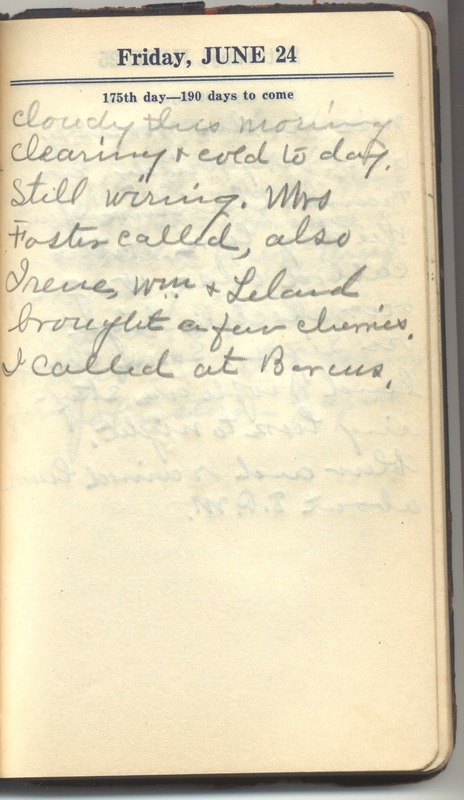 Friday, JUNE 24
175th day—190 days to come
cloudy this morning
clearing & cold to day.
Still wiring. Mrs
Foster called, also
Irene, Wm & Leland
brought a few cherries.
I called at Barcus.